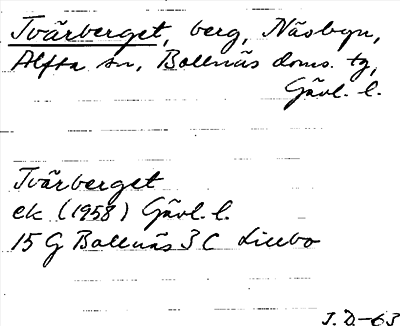 Tvärberget, berg, Näsbyn,
Alfta sn, Bollnäs doms. tg,
Gävl. l.
Tvärberget
ek (1958) Gävl. l.
15 G Bollnäs 3 C
J. D-63